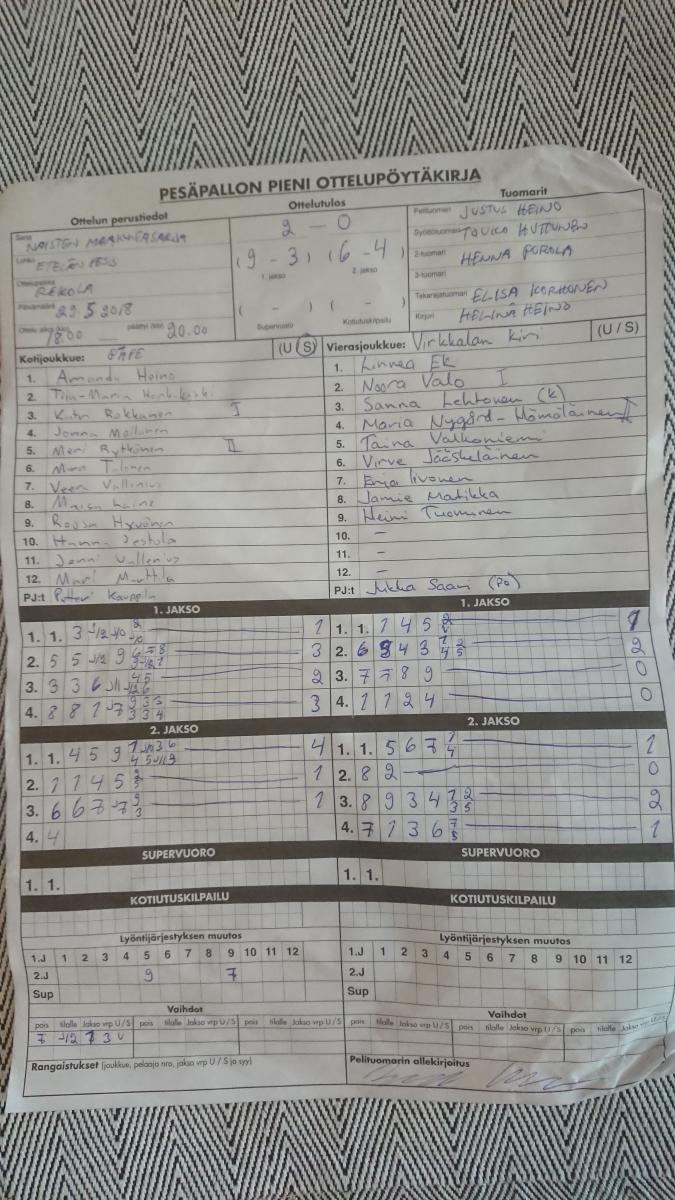 PESÄPALLON PIENI OTTELUPÖYTÄKIRJA
Ottelun perustiedot
Ottelutulos
Tuomarit
Sarja NAISTEN MAAKUNTASARJA
2 - 0
Pelituomari JUSTUS HEINO
Lohko ETELÄN PESIS
(9 - 3) (6 - 4)
1. jakso
2. jakso
Syöttötuomari TOUKO HUTTUNEN
Ottelupaikka REKOLA
2-tuomari HENNA POROLA
3-tuomari
Päivämäärä 29.5.2018
( - ) ( - )
Takarajatuomari ELISA KORHONEN
Ottelu alkoi (klo) 18.00 päättyi (klo) 20.00
Supervuoro
Kotiutuskilpailu
Kirjuri HELINÄ HEINO
Kotijoukkue:
(U / S)
Vierasjoukkue: Virkkalan Kiri
(U / S)
1. Amanda Heino
2.
3. Katri Rokkanen I
4. Jonna
5. Meri Rytkönen II
6.
7. Veera Vallenius
8. Maisa Laine
9. Roosa Hyvönen
10. Hanna Jestola
11. Jenni Vallenius
12. Mari Marttla
PJ:t Petteri Kauppila
1. Linnea Ek
2. Noora Valo I
3. Sanna Lehtonen (k)
4. Maria Nygård-Hämäläinen II
5. Taina Valkoniemi
6. Virve Jääskeläinen
7. Erja Iivonen
8. Jamie Matikka
9. Heini Tuominen
10. -
11. -
12. -
PJ:t Jukka Saari (Po)
1. JAKSO
1. JAKSO
1. 1. 3 1
2. 5 5 9 3
3. 3 3 6 2
4. 8 8 1 3
1. 1. 1 4 5 1
2. 6 4 3 2
3. 7 7 8 9 0
4. 1 1 2 4 0
2. JAKSO
2. JAKSO
1. 1. 4 5 9 4
2. 1 1 4 5 1
3. 6 6 7 1
4. 4
1. 1. 5 6 7 1
2. 8 2 0
3. 8 9 3 4 2
4. 7 1 3 6 1
SUPERVUORO
SUPERVUORO
1. 1.
1. 1.
KOTIUTUSKILPAILU
KOTIUTUSKILPAILU
Lyöntijärjestyksen muutos
Lyöntijärjestyksen muutos
1.J 1 2 3 4 5 6 7 8 9 10 11 12
1.J 1 2 3 4 5 6 7 8 9 10 11 12
2.J 9 7
2.J
Sup
Sup
Vaihdot
Vaihdot
pois tilalle Jakso vrp U / S pois tilalle Jakso vrp U / S pois tilalle Jakso vrp U / S
pois tilalle Jakso vrp U / S pois tilalle Jakso vrp U / S pois tilalle Jakso vrp U / S
7 J12 1 3 U
Rangaistukset (joukkue, pelaaja nro, jakso vrp U / S ja syy)
Pelituomarin allekirjoitus